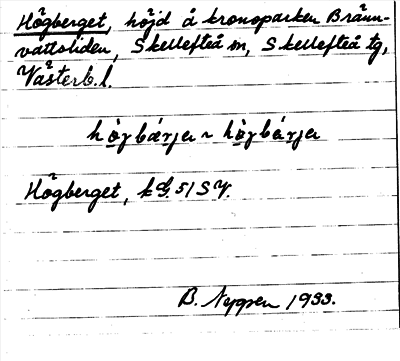 Högberget, höjd å kronoparken Bränn-
vattsliden, Skellefteå sn, Skellefteå tg,
Västerb. l.
högbärjer ~ högbärjer
Högberget, k. 51 SV.
B. Nygren 1933.